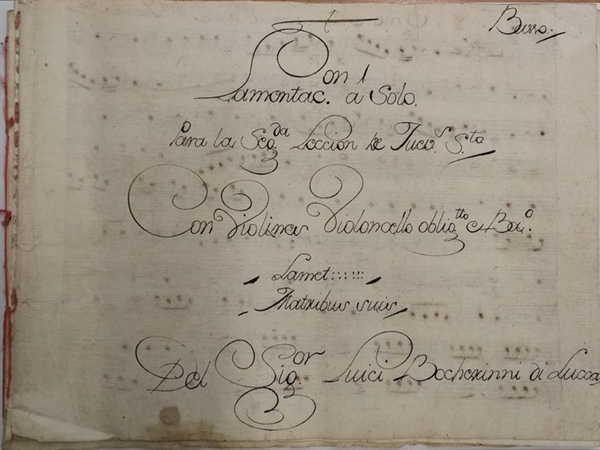 Basso.
Con 1
Lamentac. a Solo.
Para la Segda Leccion de Juevs Sto
Con Violines Violoncello obligtto e Bao.
Lamet::::::
Matribus suis
Del Sigor Luici Bocherinni di Lucca